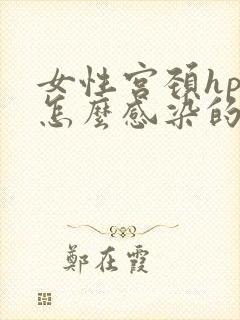 女性宮頚hp
怎麼感染的
鄭在霞